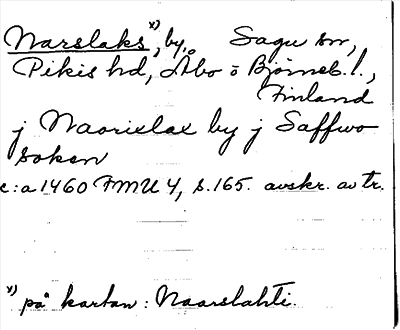 Narslaks x), by, Sagu sn,
Pikis hd, Åbo o Björneb. l.,
Finland
j Naorixlax by j Saffwo
soken
c:a 1460 FMU 4, s. 165. avskr. av tr.
x) på kartan: Naarslahti.